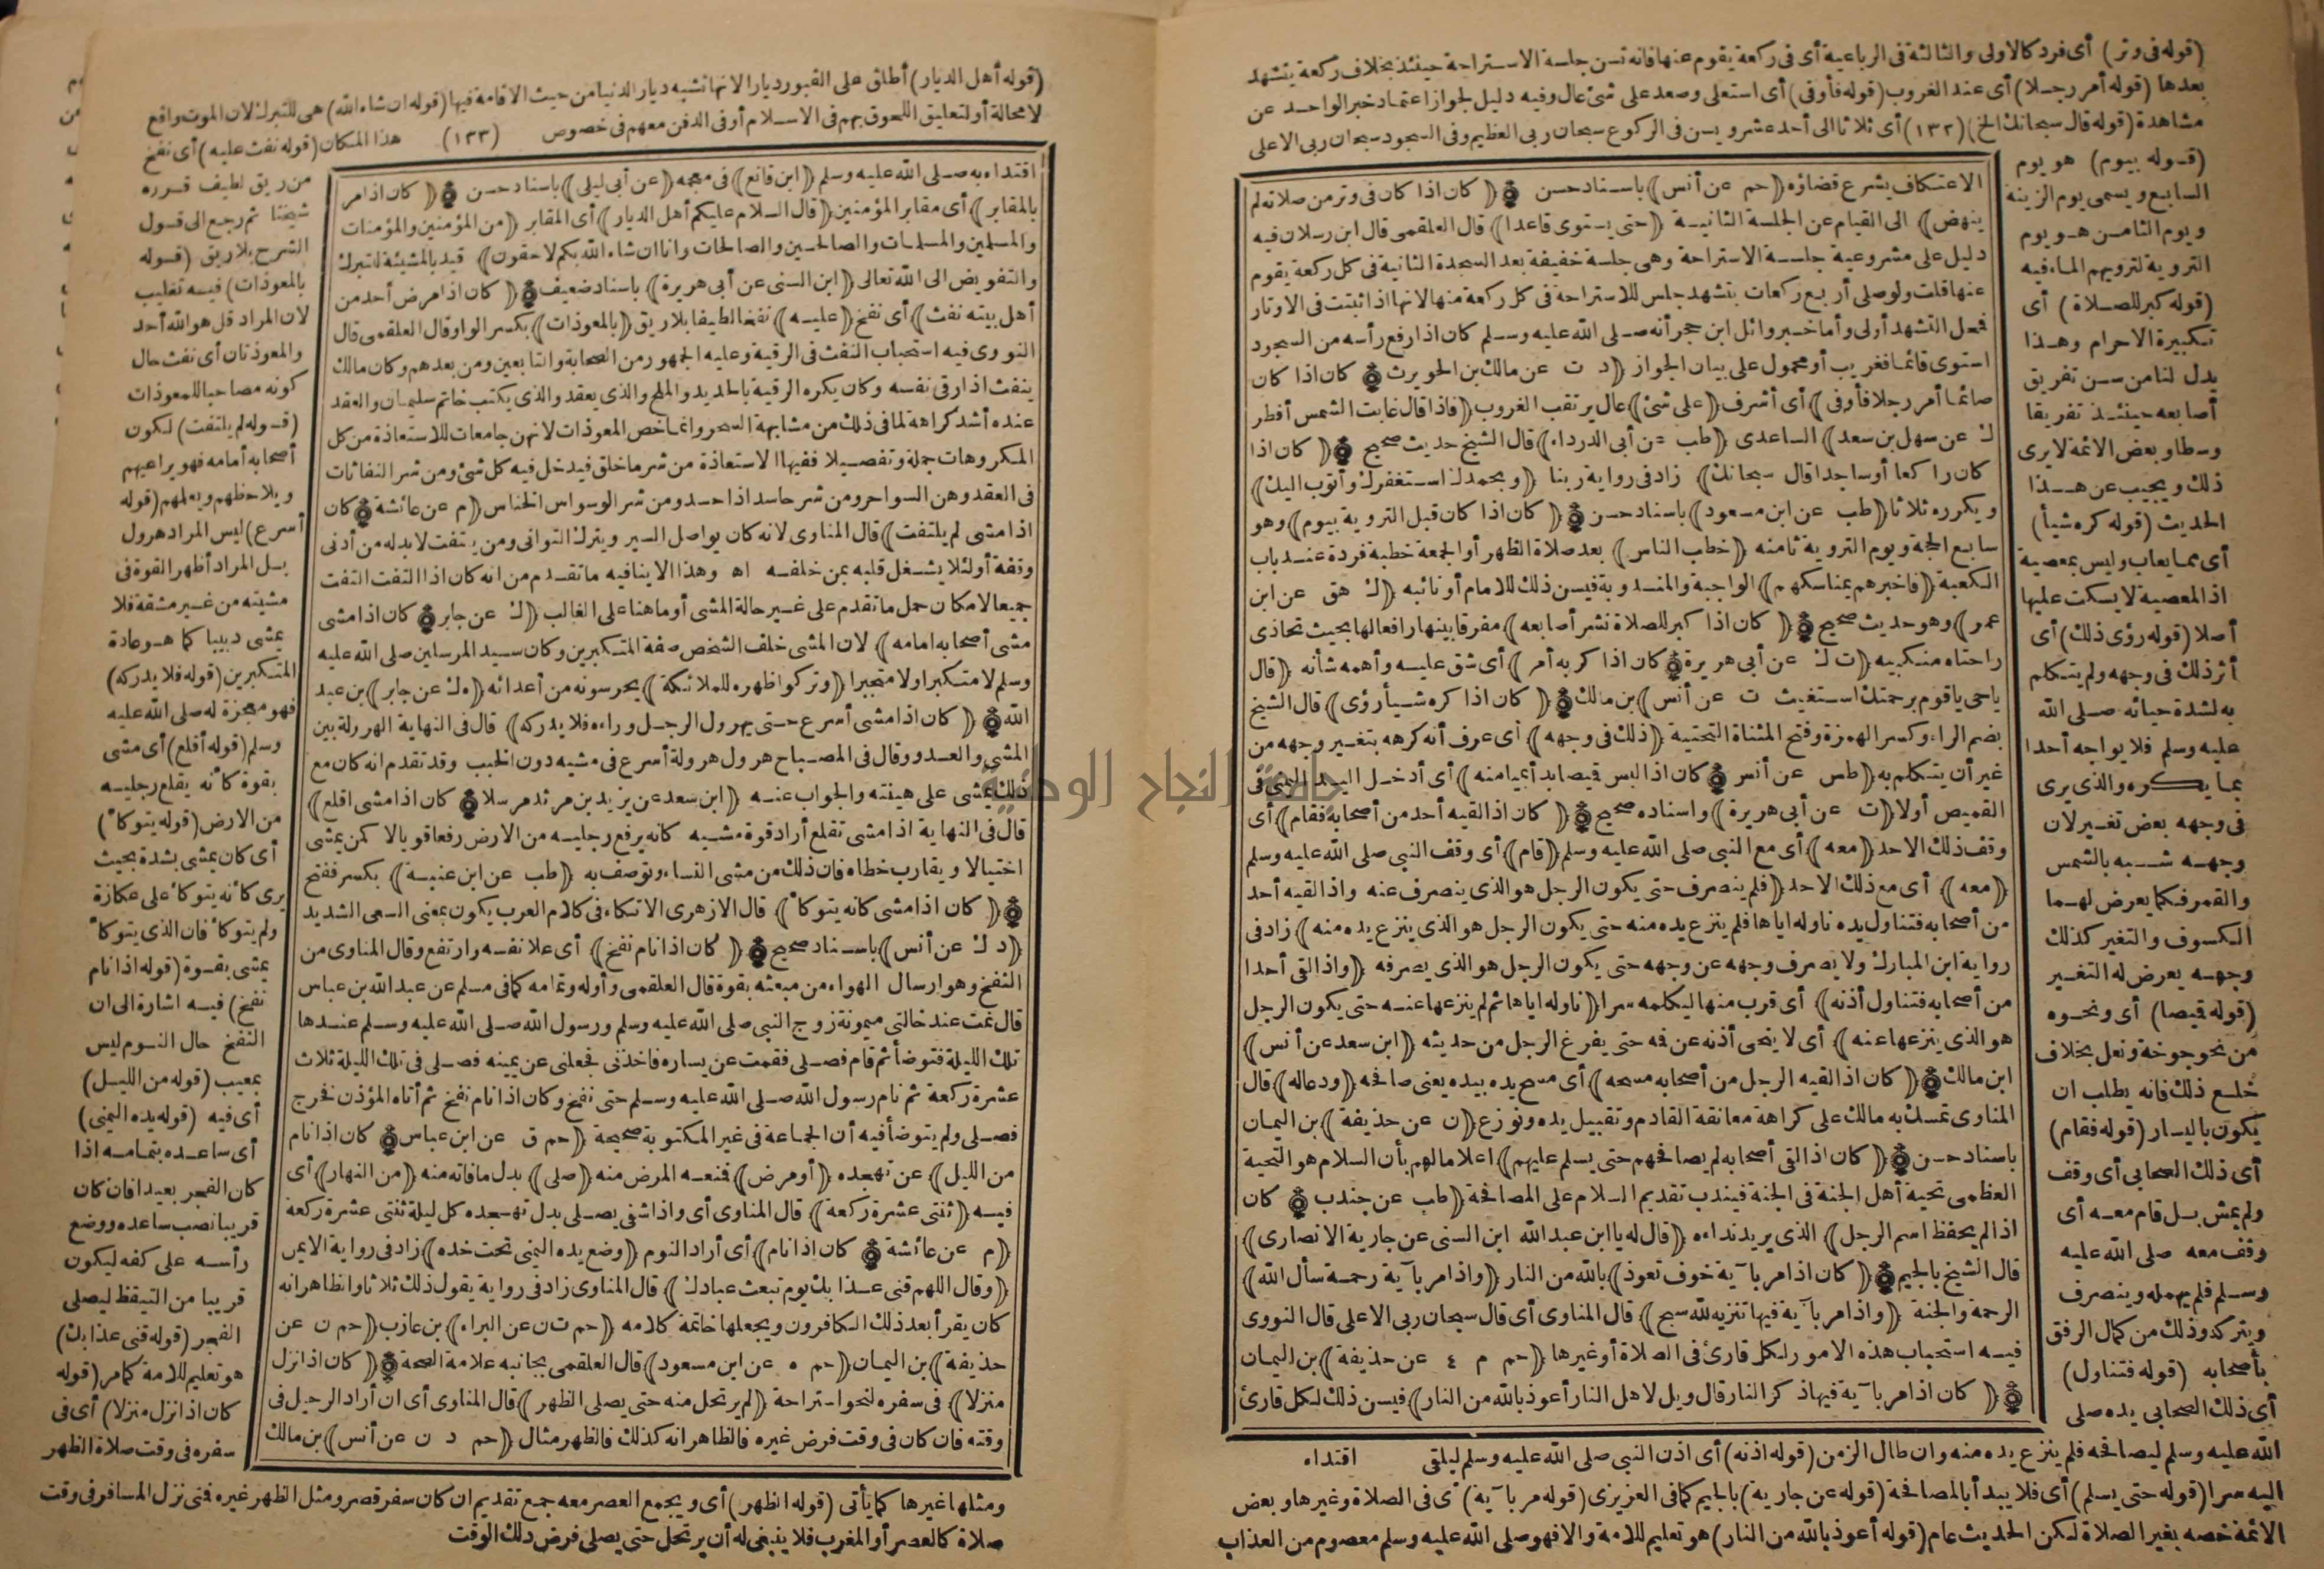 (قوله فى وتر) أى فرد كالاولى والثالثة فى الرباعية أى فى ركعة يقوم عنها فانه تسن جلسة الاستراحة حينئذ بخلاف ركعة يتشهد
بعدها (قوله أمر رجلا) أى عند الغروب (قوله فأوفى) أى استعلى وصعد على شئ عال وفيه دليل لجواز اعتماد خبر الواحد عن
مشاهدة (قوله قال سبحانك الخ) (١٣٢) أى ثلاثا الى أحد عشر ويسن فى الركوع سبحان ربى العظيم وفى السجود سبحان ربى الاعلى
(قوله بيوم) هو يوم
السابع ويسمى يوم الزينة
ويوم الثامن هو يوم
التروية لترويهم الماء فيه
(قوله كبر للصلاة) أى
تكبيرة الاحرام وهذا
يدل لنا من سن تفريق
أصابعه حينئذ تفريقا
وسطا وبعض الائمة لا يرى
ذلك ويجيب عن هذا
الحديث (قوله كره شيأ)
أى مما يعاب وليس بمعصية
اذ المعصية لا يسكت عليها
أصلا (قوله رؤى ذلك) أى
أثر ذلك فى وجهه ولم يتكلم
به لشدة حيائه صلى الله
عليه وسلم فلا يواجه أحدا
بما يكره والذى يرى
فى وجهه بعض تغير لان
وجهه شبه بالشمس
والقمر فكما يعرض لهما
الكسوف والتغير كذلك
وجهه يعرض له التغير
(قوله قميصا) أى ونحوه
من نحو جوخة ونعل بخلاف
خلع ذلك فانه يطلب ان
يكون باليسار (قوله فقام)
أى ذلك الصحابى أى وقف
ولم يمش بل قام معه أى
وقف معه صلى الله عليه
وسلم فلم يهمله وينصرف
ويتركه وذلك من كمال الرفق
بأصحابه (قوله فتناول)
أى ذلك الصحابى يده صلى
الاعتكاف يشرع قضاؤه (حم عن أنس) باسناد حسن (كان اذا كان فى وتر من صلاته لم
ينهض) الى القيام عن الجلسة الثانية (حتى يستوى قاعدا) قال العلقمى قال ابن رسلان فيه
دليل على مشروعية جلسة الاستراحة وهى جلسة خفيفة بعد السجدة الثانية فى كل ركعة يقوم
عنها قلت ولو صلى أربع ركعات بتشهد جلس للاستراحة فى كل ركعة منها لانها اذا ثبتت فى الاوتار
فمحل التشهد أولى وأما خبر وائل ابن حجر أنه صلى الله عليه وسلم كان اذا رفع رأسه من السجود
استوى قائما فغريب أو محمول على بيان الجواز (د ت عن مالك بن الحويرث كان اذا كان
صائما أمر رجلا فأوفى) أى أشرف (على شئ) عال يرتقب الغروب (فاذا قال غابت الشمس أفطر
ك عن سهل بن سعد) الساعدى (طب عن أبى الدرداء) قال الشيخ حديث صحيح (كان اذا
كان راكعا أو ساجدا قال سبحانك) زاد فى رواية ربنا (وبحمدك استغفرك وأتوب اليك)
ويكرره ثلاثا (طب عن ابن مسعود) باسناد حسن (كان اذا كان قبل التروية بيوم) وهو
سابع الحجة ويوم التروية ثامنه (خطب الناس) بعد صلاة الظهر أو الجمعة خطبة فردة عند باب
الكعبة (فاخبرهم بمناسكهم) الواجبة والمندوبة فيسن ذلك للامام أو نائبه (ك هق عن ابن
عمر) وهو حديث صحيح (كان اذا كبر للصلاة نشر أصابعه) مفرقا بينها رافعا لها بحيث تحاذى
راحتاه منكبيه (ت ك عن أبى هريرة كان اذا كربه أمر) أى شق عليه وأهمه شأنه (قال
ياحى ياقيوم برحمتك استغيث ت عن أنس) بن مالك (كان اذا كره شيأ رؤى) قال الشيخ
بضم الراء وكسر الهمزة وفتح المثناة التحتية (ذلك فى وجهه) أى عرف أنه كرهه بتغير وجهه من
غير أن يتكلم به (طس عن أنس كان اذا لبس قميصا بدأ بميامنه) أى أدخل اليد اليمنى فى
القميص أولا (ت عن أبى هريرة) واسناده صحيح (كان اذا لقيه أحد من أصحابه فقام) أى
وقف ذلك الاحد (معه) أى مع النبى صلى الله عليه وسلم (قام) أى وقف النبى صلى الله عليه وسلم
(معه) أى مع ذلك الاحد (فلم ينصرف حتى يكون الرجل هو الذى ينصرف عنه واذا لقيه أحد
من أصحابه فتناول يده ناوله اياها فلم ينزع يده منه حتى يكون الرجل هو الذى ينزع يده منه) زاد فى
رواية ابن المبارك ولا يصرف وجهه عن وجهه حتى يكون الرجل هو الذى يصرفه (واذا لقى أحدا
من أصحابه فتناول أذنه) أى قرب منها ليكلمه سرا (ناوله اياها ثم لم ينزعها عنه حتى يكون الرجل
هو الذى ينزعها عنه) أى لا ينحى أذنه عن فمه حتى يفرغ الرجل من حديثه (ابن سعد عن أنس)
ابن مالك (كان اذا لقيه الرجل من أصحابه مسحه) أى مسح يده بيده يعنى صافحه (ودعا له) قال
المناوى تمسك به مالك على كراهة معانقة القادم وتقبيل يده ونوزع (ن عن حذيفة) بن اليمان
باسناد حسن (كان اذا لقى أصحابه لم يصافحهم حتى يسلم عليهم) اعلاما لهم بأن السلام هو التحية
العظمى تحية أهل الجنة فى الجنة فيندب تقديم السلام على المصافحة (طب عن جندب كان
اذا لم يحفظ اسم الرجل) الذى يريد نداءه (قال له يا ابن عبد الله ابن السنى عن جارية الانصارى)
قال الشيخ بالجيم (كان اذا مر بآية خوف تعوذ) بالله من النار (واذا مر بآية رحمة سأل الله)
الرحمة والجنة (واذا مر بآية فيها تنزيه لله سبح) قال المناوى أى قال سبحان ربى الاعلى قال النووى
فيه استحباب هذه الامور لكل قارئ فى الصلاة أو غيرها (حم م ٤ عن حذيفة) بن اليمان
(كان اذا مر بآية فيها ذكر النار قال ويل لاهل النار أعوذ بالله من النار) فيسن ذلك لكل قارئ
الله عليه وسلم ليصافحه فلم ينزع يده منه وان طال الزمن (قوله اذنه) أى اذن النبى صلى الله عليه وسلم ليلقى اقتداء
اليه سرا (قوله حتى يسلم) أى فلا يبدأ بالمصافحة (قوله عن جارية) بالجيم كما فى العزيزى (قوله مر بآية) أى فى الصلاة وغيرها وبعض
الائمة خصه بغير الصلاة لكن الحديث عام (قوله أعوذ بالله من النار) هو تعليم للامة والا فهو صلى الله عليه وسلم معصوم من العذاب
(قوله أهل الديار) أطلق على القبور ديار الانها تشبه ديار الدنيا من حيث الاقامة فيها (قوله ان شاء الله) هى للتبرك لان الموت واقع
لا محالة أو لتعليق اللحوق بهم فى الاسلام أو فى الدفن معهم فى خصوص (١٣٣) هذا المكان (قوله نفث عليه) أى نفخ
من ريق لطيف قرره
شيخنا ثم رجع الى قول
الشرح بلا ريق (قوله
بالمعوذات) فيه تغليب
لان المراد قل هو الله أحد
والمعوذتان أى نفث حال
كونه مصاحبا للمعوذات
(قوله لم يلتفت) لكون
أصحابه أمامه فهو يراعيهم
ويلاحظهم ويعلمهم (قوله
أسرع) ليس المراد هرول
بل المراد أظهر القوة فى
مشيته من غير مشقة فلا
يمشى دبيبا كما هو عادة
المتكبرين (قوله فلا يدركه)
فهو معجزة له صلى الله عليه
وسلم (قوله أقلع) أى مشى
بقوة كأنه يقلع رجليه
من الارض (قوله يتوكأ)
أى كان يمشى بشدة بحيث
يرى كأنه يتوكأ على عكازة
ولم يتوكأ فان الذى يتوكأ
يمشى بقوة (قوله اذا نام
نفخ) فيه اشارة الى ان
النفخ حال النوم ليس
بمعيب (قوله من الليل)
أى فيه (قوله يده اليمنى)
أى ساعده بتمامه اذا
كان الفجر بعيدا فان كان
قريبا نصب ساعده ووضع
رأسه على كفه ليكون
قريبا من التيقظ ليصلى
الفجر (قوله قنى عذابك)
هو تعليم للامة كما مر (قوله
كان اذا نزل منزلا) أى فى
سفره فى وقت صلاة الظهر
اقتداء به صلى الله عليه وسلم (ابن قانع) فى معجمه (عن أبى ليلى) باسناد حسن (كان اذا مر
بالمقابر) أى مقابر المؤمنين (قال السلام عليكم أهل الديار) أى المقابر (من المؤمنين والمؤمنات
والمسلمين والمسلمات والصالحين والصالحات وانا ان شاء الله بكم لاحقون) قيد بالمشيئة للتبرك
والتفويض الى الله تعالى (ابن السنى عن أبى هريرة) باسناد ضعيف (كان اذا مرض أحد من
أهل بيته نفث) أى نفخ (عليه) نفخا لطيفا بلا ريق (بالمعوذات) بكسر الواو قال العلقمى قال
النووى فيه استحباب النفث فى الرقية وعليه الجمهور من الصحابة والتابعين ومن بعدهم وكان مالك
ينفث اذا رقى نفسه وكان يكره الرقية بالحديد والملح والذى يعقد والذى يكتب خاتم سليمان والعقد
عنده أشد كراهة لما فى ذلك من مشابهة السحر وانما خص المعوذات لانهن جامعات للاستعاذة من كل
المكروهات جملة وتفصيلا ففيها الاستعاذة من شر ما خلق فيدخل فيه كل شئ ومن شر النفاثات
فى العقد وهن السواحر ومن شر حاسد اذا حسد ومن شر الوسواس الخناس (م عن عائشة كان
اذا مشى لم يلتفت) قال المناوى لانه كان يواصل السير ويترك التوانى ومن يلتفت لابد له من أدنى
وقفة أو لئلا يشغل قلبه بمن خلفه اه وهذا لا ينافيه ما تقدم من انه كان اذا التفت التفت
جميعا لامكان حمل ما تقدم على غير حالة المشى أو ما هنا على الغالب (ك عن جابر كان اذا مشى
مشى أصحابه امامه) لان المشى خلف الشخص صفة المتكبرين وكان سيد المرسلين صلى الله عليه
وسلم لا متكبرا ولا متجبرا (وتركوا ظهره للملائكة) يحرسونه من أعدائه (ه ك عن جابر) بن عبد
الله (كان اذا مشى أسرع حتى يهرول الرجل وراءه فلا يدركه) قال فى النهاية الهرولة بين
المشى والعدو وقال فى المصباح هرول هرولة أسرع فى مشيه دون الخبب وقد تقدم انه كان مع
ذلك يمشى على هينته والجواب عنه (ابن سعد عن يزيد بن مرثد مرسلا كان اذا مشى اقلع)
قال فى النهاية اذا مشى تقلع أراد قوة مشيه كانه يرفع رجليه من الارض رفعا قويا لا كمن يمشى
اختيالا ويقارب خطاه فان ذلك من مشى النساء وتوصف به (طب عن ابن عنبة) بكسر ففتح
(كان اذا مشى كانه يتوكأ) قال الازهرى الاتكاء فى كلام العرب يكون بمعنى السعى الشديد
(د ك عن أنس) باسناد صحيح (كان اذا نام نفخ) أى علا نفسه وارتفع وقال المناوى من
النفخ وهو ارسال الهواء من مبعثه بقوة قال العلقمى وأوله وتمامه كما فى مسلم عن عبد الله بن عباس
قال نمت عند خالتى ميمونة زوج النبى صلى الله عليه وسلم ورسول الله صلى الله عليه وسلم عندها
تلك الليلة فتوضأ ثم قام فصلى فقمت عن يساره فاخذنى فجعلنى عن يمينه فصلى فى تلك الليلة ثلاث
عشرة ركعة ثم نام رسول الله صلى الله عليه وسلم حتى نفخ وكان اذا نام نفخ ثم أتاه المؤذن فخرج
فصلى ولم يتوضأ فيه أن الجماعة فى غير المكتوبة صحيحة (حم ق عن ابن عباس كان اذا نام
من الليل) عن تهجده (أو مرض) فمنعه المرض منه (صلى) بدل ما فاته منه (من النهار) أى
فيه (ثنتى عشرة ركعة) قال المناوى أى واذا شفى يصلى بدل تهجده كل ليلة ثنتى عشرة ركعة
(م عن عائشة كان اذا نام) أى أراد النوم (وضع يده اليمنى تحت خده) زاد فى رواية الايمن
(وقال اللهم قنى عذابك يوم تبعث عبادك) قال المناوى زاد فى رواية يقول ذلك ثلاثا والظاهر انه
كان يقرأ بعد ذلك الكافرون ويجعلها خاتمة كلامه (حم ت ن عن البراء) بن عازب (حم ن عن
حذيفة) بن اليمان (حم ه عن ابن مسعود) قال العلقمى بجانبه علامة الصحة (كان اذا نزل
منزلا) فى سفره لنحو استراحة (لم يرتحل منه حتى يصلى الظهر) قال المناوى أى ان أراد الرحيل فى
وقته فان كان فى وقت فرض غيره فالظاهر انه كذلك فالظهر مثال (حم د ن عن أنس) بن مالك
ومثلها غيرها كما يأتى (قوله الظهر) أى ويجمع العصر معه جمع تقديم ان كان سفر قصر ومثل الظهر غيره فمتى نزل المسافر فى وقت
صلاة كالعصر أو المغرب فلا ينبغى له أن يرتحل حتى يصلى فرض ذلك الوقت
جامعة النجاح الوطنية